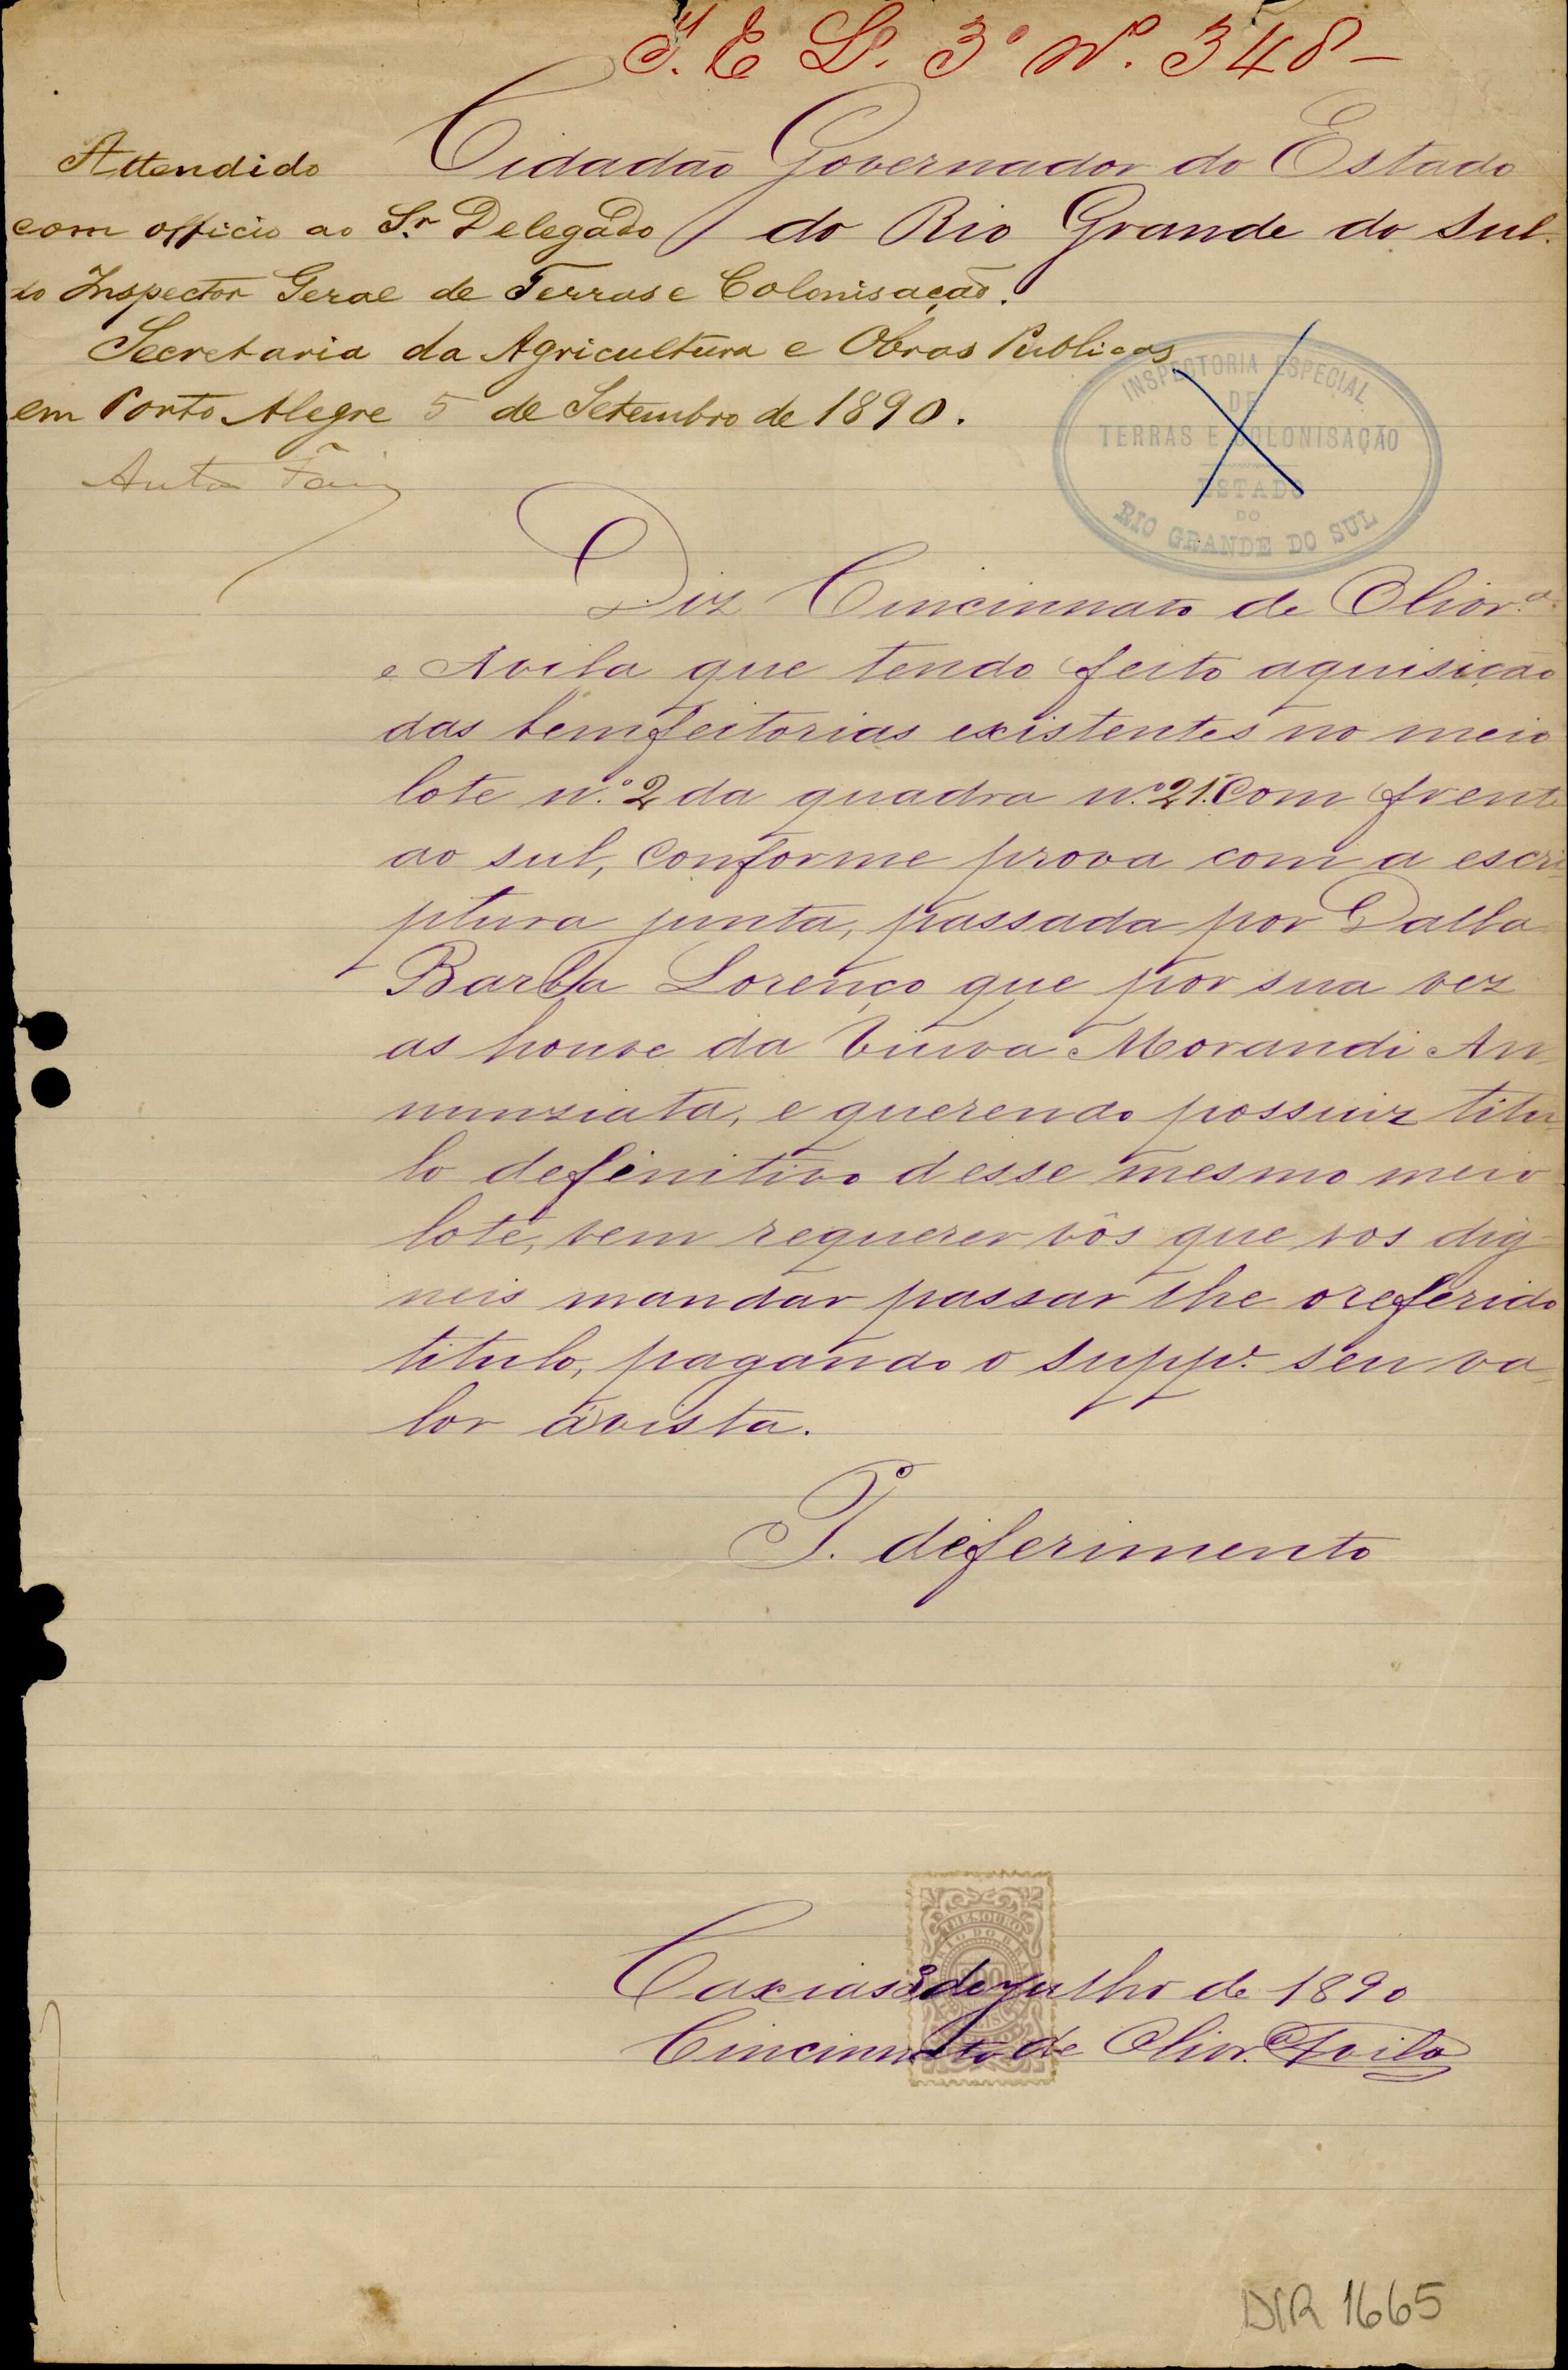 I. E L.º 3º Nº. 348 –
Cidadão Governador do Estado
do Rio Grande do Sul.
Attendido
com officio ao Sr. Delegado
do Inspector Geral de Terras e Colonisação.
Secretaria da Agricultura e Obras Publicas
em Porto Alegre 5 de Setembro de 1890.
INSPECTORIA ESPECIAL
DE
TERRAS E COLONISAÇÃO
ESTADO
DO
RIO GRANDE DO SUL
Diz Cincinnato de Olivr.ª
e Avila que tendo feito aquisição
das bemfeitorias existentes no meio
lote n.º 2 da quadra n.º 21. Com frente
ao sul, conforme prova com a escri-
ptura junta, passada por Dalla
Barba Lorenço que por sua vez
as houve da Viuva Morandi An-
nunziata, e querendo possuir titu-
lo definitivo desse mesmo meio
lote, vem requerer vôs que vos dig-
neis mandar passar lhe o referido
titulo, pagando o suppe. seu va-
lor ávista.
P. deferimento
Caxias 3 de Julho de 1890
Cincinnato de Olivr.ª Avila
DIR 1665